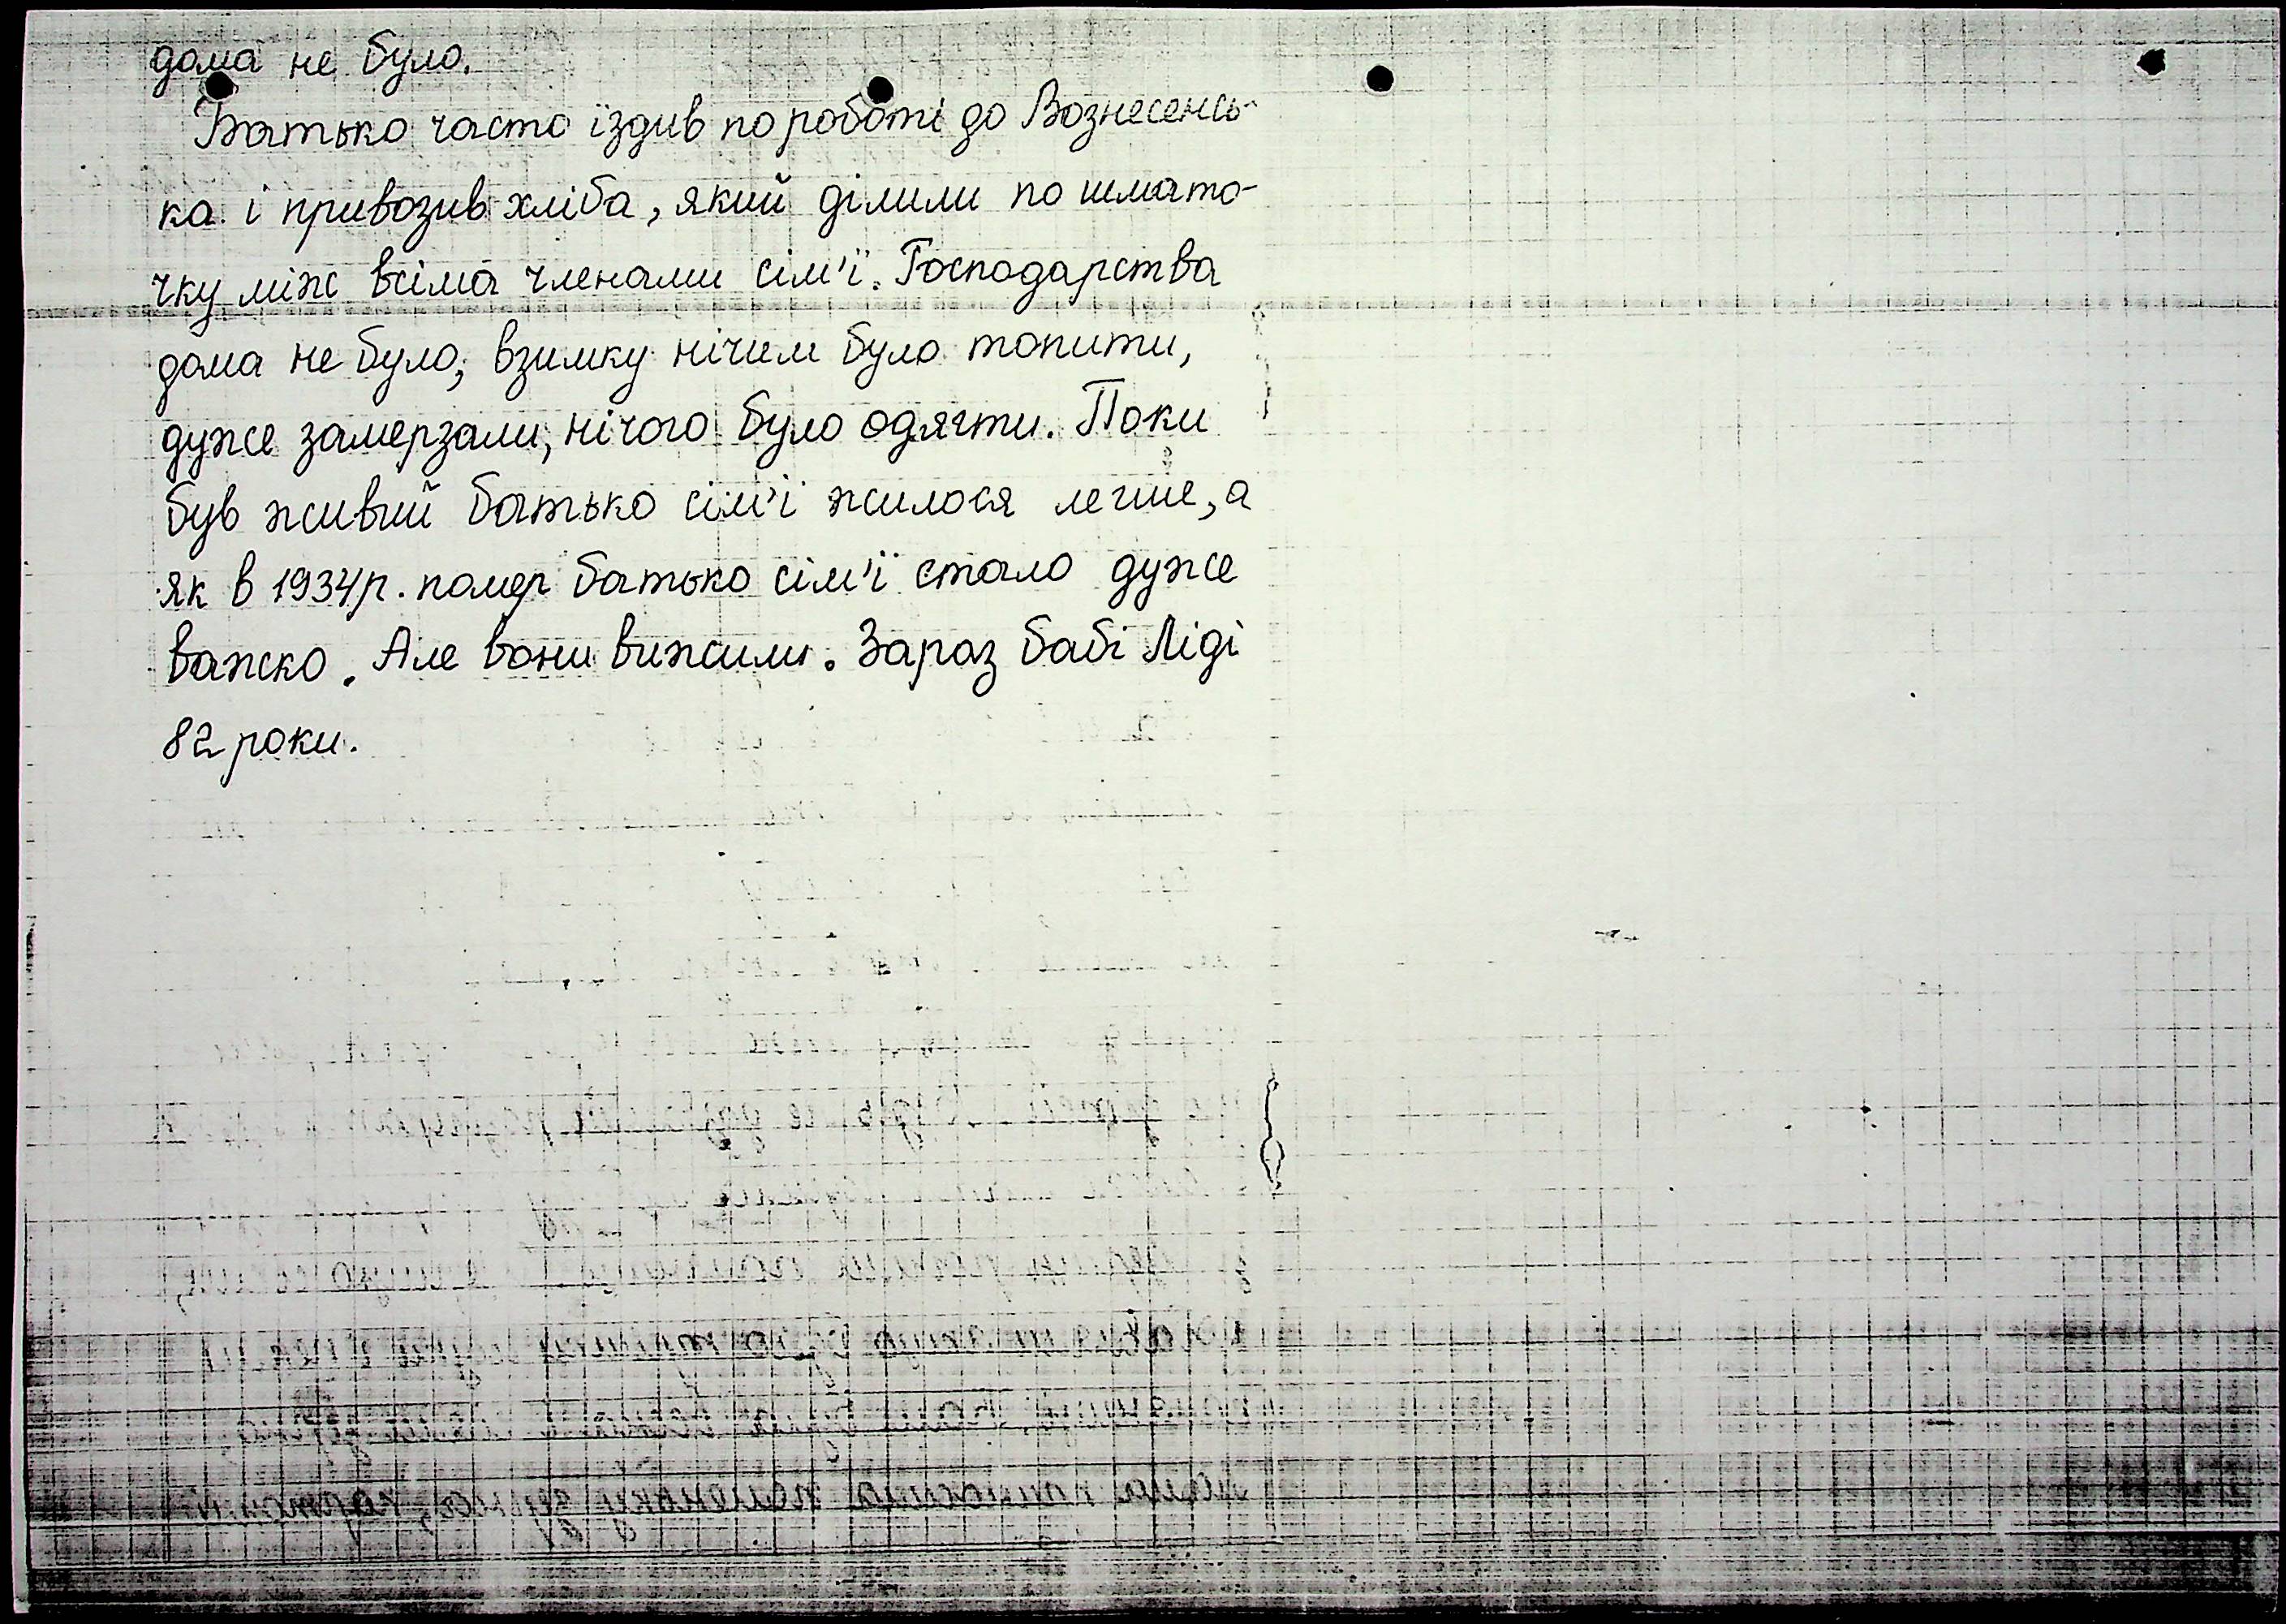 дома не було.
Батько часто їздив по роботі до Вознесенсь-
ка і привозив хліба, який ділили по шмато-
чку між всіма членами сім'ї. Господарства
дома не було, взимку нічим було топити,
дуже замерзали, нічого було одягти. Поки
був живий батько сім'ї жилося легше, а
як в 1934р. помер батько сім'ї стало дуже
важко. Але вони вижили. Зараз бабі Ліді
82 роки.